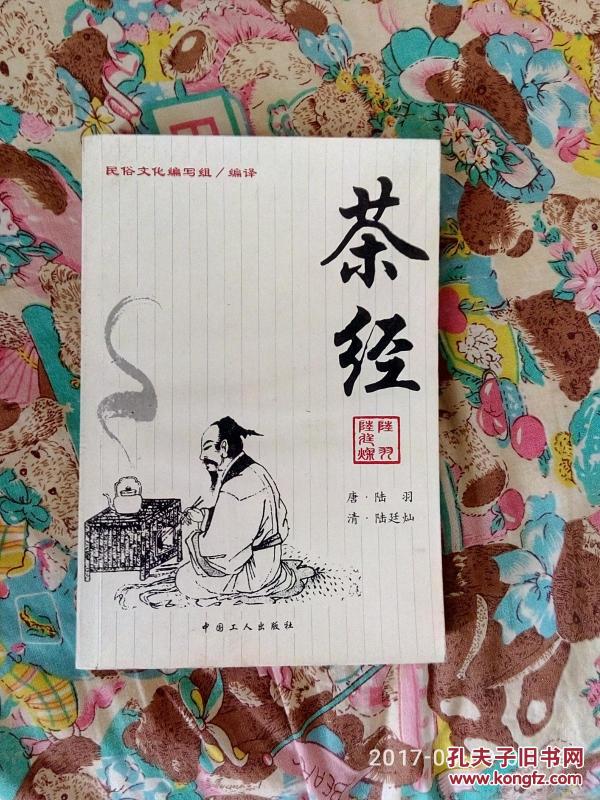 民俗文化编写组／编译
茶经
陸羽
陸廷燦
唐·陆 羽
清·陆廷灿
中国工人出版社
2017-0
孔夫子旧书网
www.kongfz.com